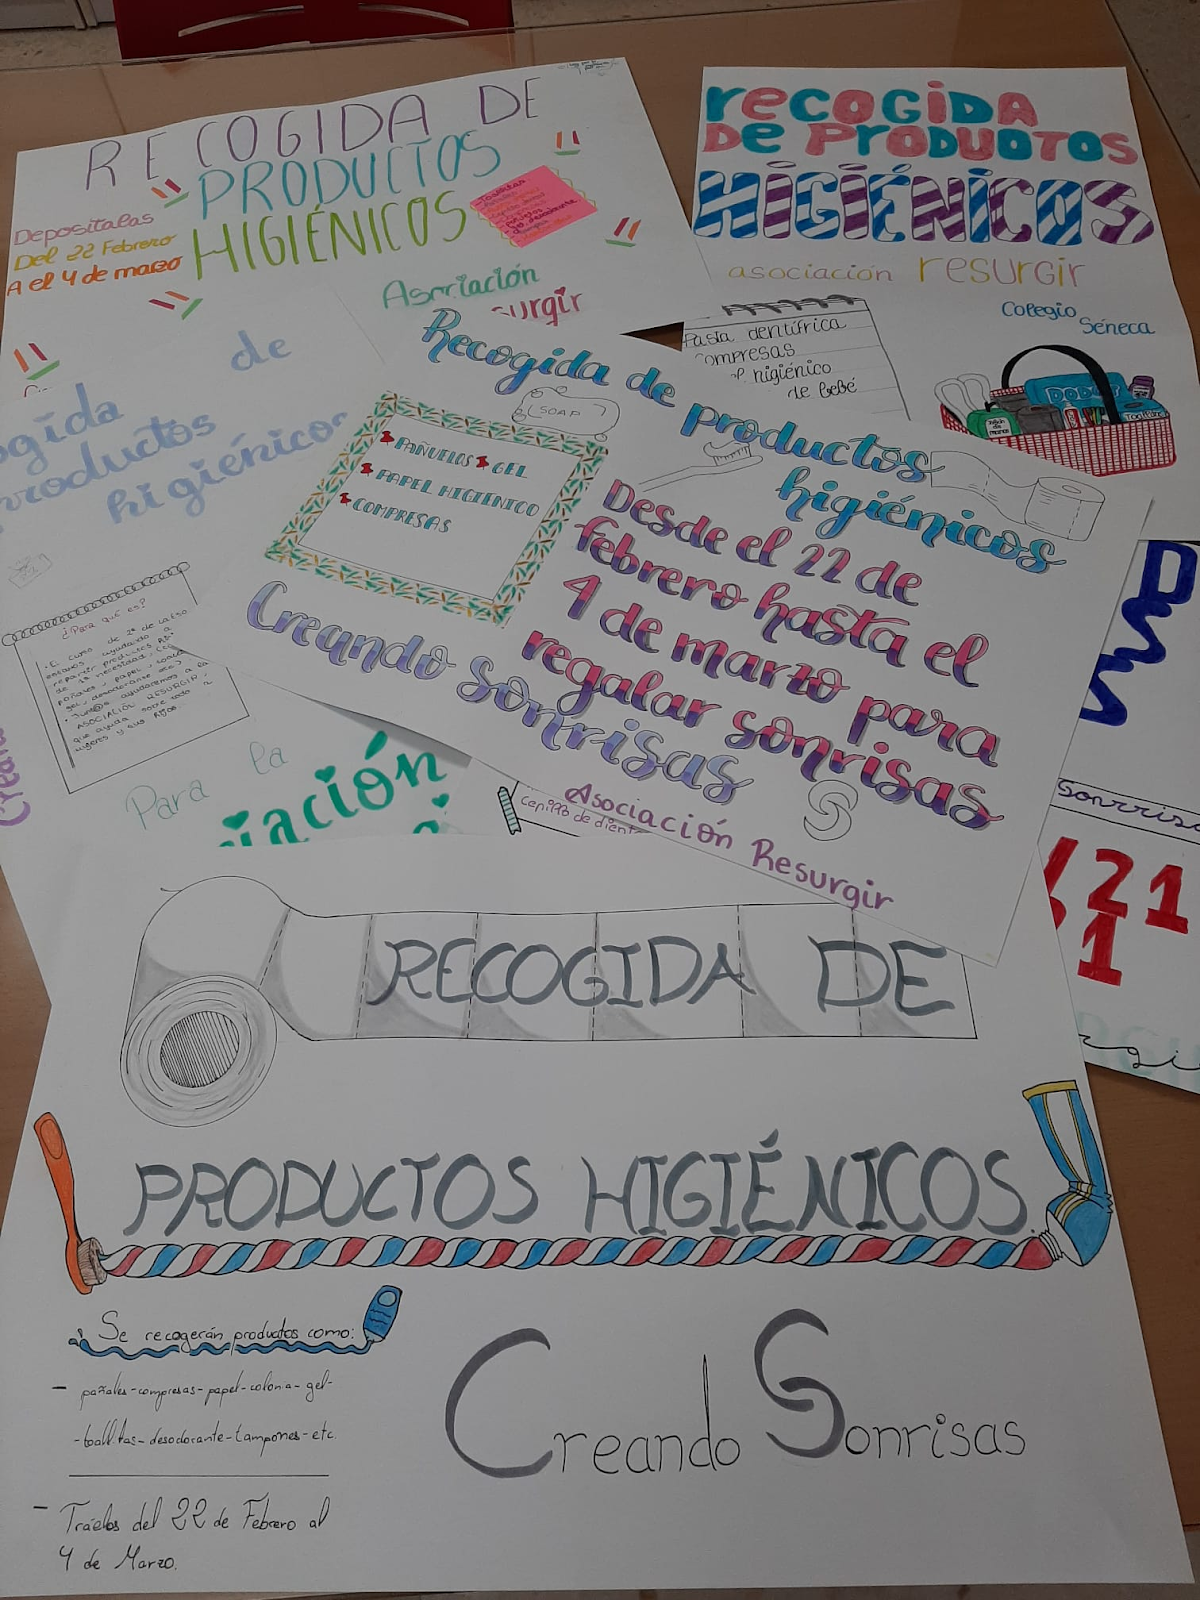 RECOGIDA DE
PRODUCTOS
HIGIÉNICOS
Deposítalas
Del 22 Febrero
A el 4 de marzo
Asociación
surgir
recogida
de productos
HIGIÉNICOS
asociación resurgir
Colegio
Séneca
Pasta dentífrica
compresas
higiénico
de bebé
DODOT
de
ogida
productos
higiénicos
¿Para qué es?
Para la
iación
Recogida de
productos
higiénicos
(SOAP)
PAÑUELOS GEL
PAPEL HIGIENICO
COMPRESAS
Desde el 22 de
febrero hasta el
4 de marzo para
regalar sonrisas
Creando sonrisas
Asociación Resurgir
Cepillo de dient
/21
1
RECOGIDA DE
PRODUCTOS HIGIÉNICOS.
Se recogerán productos como:
- pañales-compresas-papel-colonia-gel-
-toallitas-desodorante-tampones-etc.
- Tráelos del 22 de Febrero al
4 de Marzo.
Creando Sonrisas